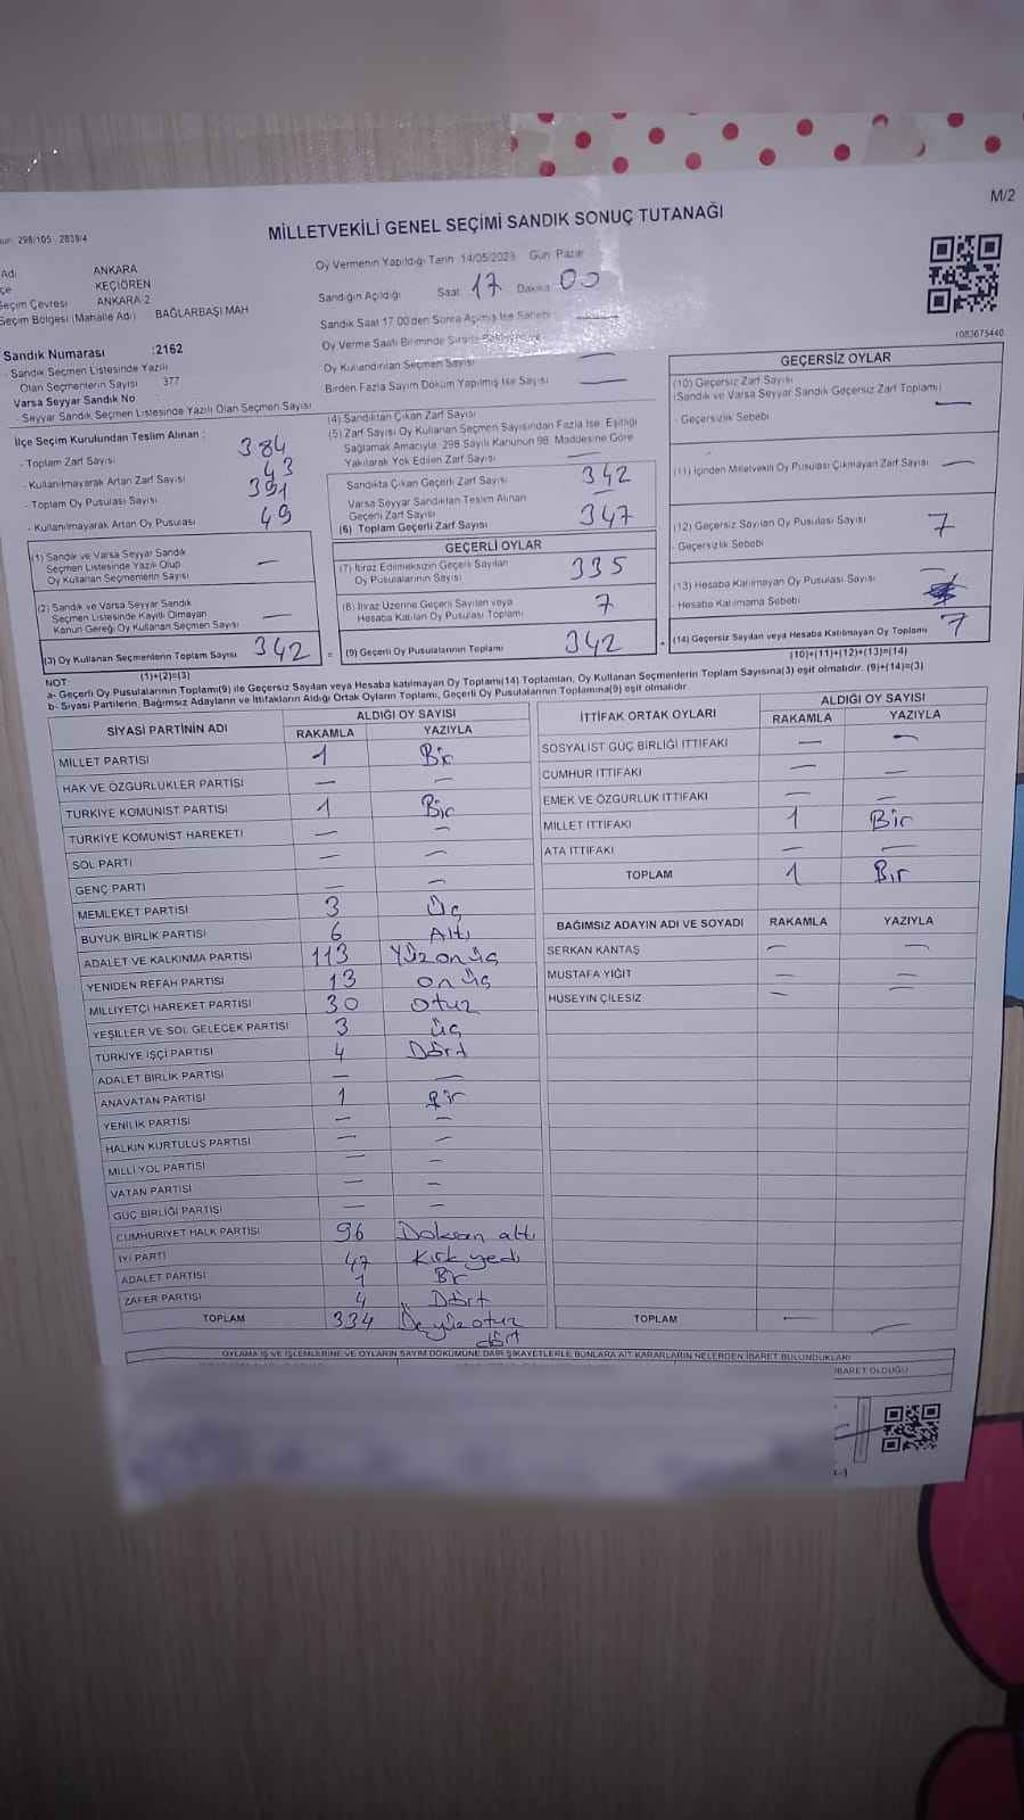 M/2
298/105 2839/4
MİLLETVEKİLİ GENEL SEÇİMİ SANDIK SONUÇ TUTANAĞI
Adı ANKARA
KEÇİÖREN
Seçim Çevresi ANKARA 2
Seçim Bölgesi (Mahalle Adı) BAĞLARBAŞI MAH
Sandık Numarası :2162
- Sandık Seçmen Listesinde Yazılı
Olan Seçmenlerin Sayısı 377
Varsa Seyyar Sandık No
- Seyyar Sandık Seçmen Listesinde Yazılı Olan Seçmen Sayısı
Oy Vermenin Yapıldığı Tarih 14/05/2023 Gün Pazar
Sandığın Açıldığı Saat 17 Dakika 00
Sandık Saat 17 00'den Sonra Açılmış İse Sebebi —
Oy Verme Saati Bitiminde
Oy Kullandırılan Seçmen Sayısı —
Birden Fazla Sayım Döküm Yapılmış İse Sayısı —
1083675440
İlçe Seçim Kurulundan Teslim Alınan :
- Toplam Zarf Sayısı 384
- Kullanılmayarak Artan Zarf Sayısı 43
- Toplam Oy Pusulası Sayısı 391
- Kullanılmayarak Artan Oy Pusulası 49
(1) Sandık ve Varsa Seyyar Sandık
Seçmen Listesinde Yazılı Olup
Oy Kullanan Seçmenlerin Sayısı —
(2) Sandık ve Varsa Seyyar Sandık
Seçmen Listesinde Kayıtlı Olmayan
Kanun Gereği Oy Kullanan Seçmen Sayısı —
(3) Oy Kullanan Seçmenlerin Toplam Sayısı 342 =
(1)+(2)=(3)
(4) Sandıktan Çıkan Zarf Sayısı
(5) Zarf Sayısı Oy Kullanan Seçmen Sayısından Fazla İse, Eşitliği
Sağlamak Amacıyla, 298 Sayılı Kanunun 98. Maddesine Göre
Yakılarak Yok Edilen Zarf Sayısı —
Sandıkta Çıkan Geçerli Zarf Sayısı 342
Varsa Seyyar Sandıktan Teslim Alınan
Geçerli Zarf Sayısı —
(6) Toplam Geçerli Zarf Sayısı 347
GEÇERLİ OYLAR
(7) İtiraz Edilmeksizin Geçerli Sayılan
Oy Pusulalarının Sayısı 335
(8) İtiraz Üzerine Geçerli Sayılan veya
Hesaba Katılan Oy Pusulası Toplamı 7
(9) Geçerli Oy Pusulalarının Toplamı 342
GEÇERSİZ OYLAR
(10) Geçersiz Zarf Sayısı
(Sandık ve Varsa Seyyar Sandık Geçersiz Zarf Toplamı) —
- Geçersizlik Sebebi
(11) İçinden Milletvekili Oy Pusulası Çıkmayan Zarf Sayısı —
(12) Geçersiz Sayılan Oy Pusulası Sayısı 7
- Geçersizlik Sebebi
(13) Hesaba Katılmayan Oy Pusulası Sayısı —
- Hesaba Katılmama Sebebi
(14) Geçersiz Sayılan veya Hesaba Katılmayan Oy Toplamı 7
(10)+(11)+(12)+(13)=(14)
NOT:
a- Geçerli Oy Pusulalarının Toplamı(9) ile Geçersiz Sayılan veya Hesaba katılmayan Oy Toplamı(14) Toplamları, Oy Kullanan Seçmenlerin Toplam Sayısına(3) eşit olmalıdır. (9)+(14)=(3)
b- Siyasi Partilerin, Bağımsız Adayların ve İttifakların Aldığı Ortak Oyların Toplamı, Geçerli Oy Pusulalarının Toplamına(9) eşit olmalıdır
SİYASİ PARTİNİN ADI ALDIĞI OY SAYISI
RAKAMLA YAZIYLA
MİLLET PARTİSİ 1 Bir
HAK VE ÖZGÜRLÜKLER PARTİSİ — —
TÜRKİYE KOMÜNİST PARTİSİ 1 Bir
TÜRKİYE KOMÜNİST HAREKETİ — —
SOL PARTİ — —
GENÇ PARTİ — —
MEMLEKET PARTİSİ 3 Üç
BÜYÜK BİRLİK PARTİSİ 6 Altı
ADALET VE KALKINMA PARTİSİ 113 Yüzonüç
YENİDEN REFAH PARTİSİ 13 onüç
MİLLİYETÇİ HAREKET PARTİSİ 30 otuz
YEŞİLLER VE SOL GELECEK PARTİSİ 3 üç
TÜRKİYE İŞÇİ PARTİSİ 4 Dört
ADALET BİRLİK PARTİSİ — —
ANAVATAN PARTİSİ 1 Bir
YENİLİK PARTİSİ — —
HALKIN KURTULUŞ PARTİSİ — —
MİLLİ YOL PARTİSİ — —
VATAN PARTİSİ — —
GÜÇ BİRLİĞİ PARTİSİ — —
CUMHURİYET HALK PARTİSİ 96 Doksan altı
İYİ PARTİ 47 Kırk yedi
ADALET PARTİSİ 1 Bir
ZAFER PARTİSİ 4 Dört
TOPLAM 334 Üçyüzotuz
dört
İTTİFAK ORTAK OYLARI ALDIĞI OY SAYISI
RAKAMLA YAZIYLA
SOSYALİST GÜÇ BİRLİĞİ İTTİFAKI — —
CUMHUR İTTİFAKI — —
EMEK VE ÖZGÜRLÜK İTTİFAKI — —
MİLLET İTTİFAKI 1 Bir
ATA İTTİFAKI — —
TOPLAM 1 Bir
BAĞIMSIZ ADAYIN ADI VE SOYADI RAKAMLA YAZIYLA
SERKAN KANTAŞ — —
MUSTAFA YİĞİT — —
HÜSEYİN ÇİLESİZ — —
TOPLAM — —
OYLAMA İŞ VE İŞLEMLERİNE VE OYLARIN SAYIM DÖKÜMÜNE DAİR ŞİKAYETLERLE BUNLARA AİT KARARLARIN NELERDEN İBARET BULUNDUKLARI
İBARET OLDUĞU